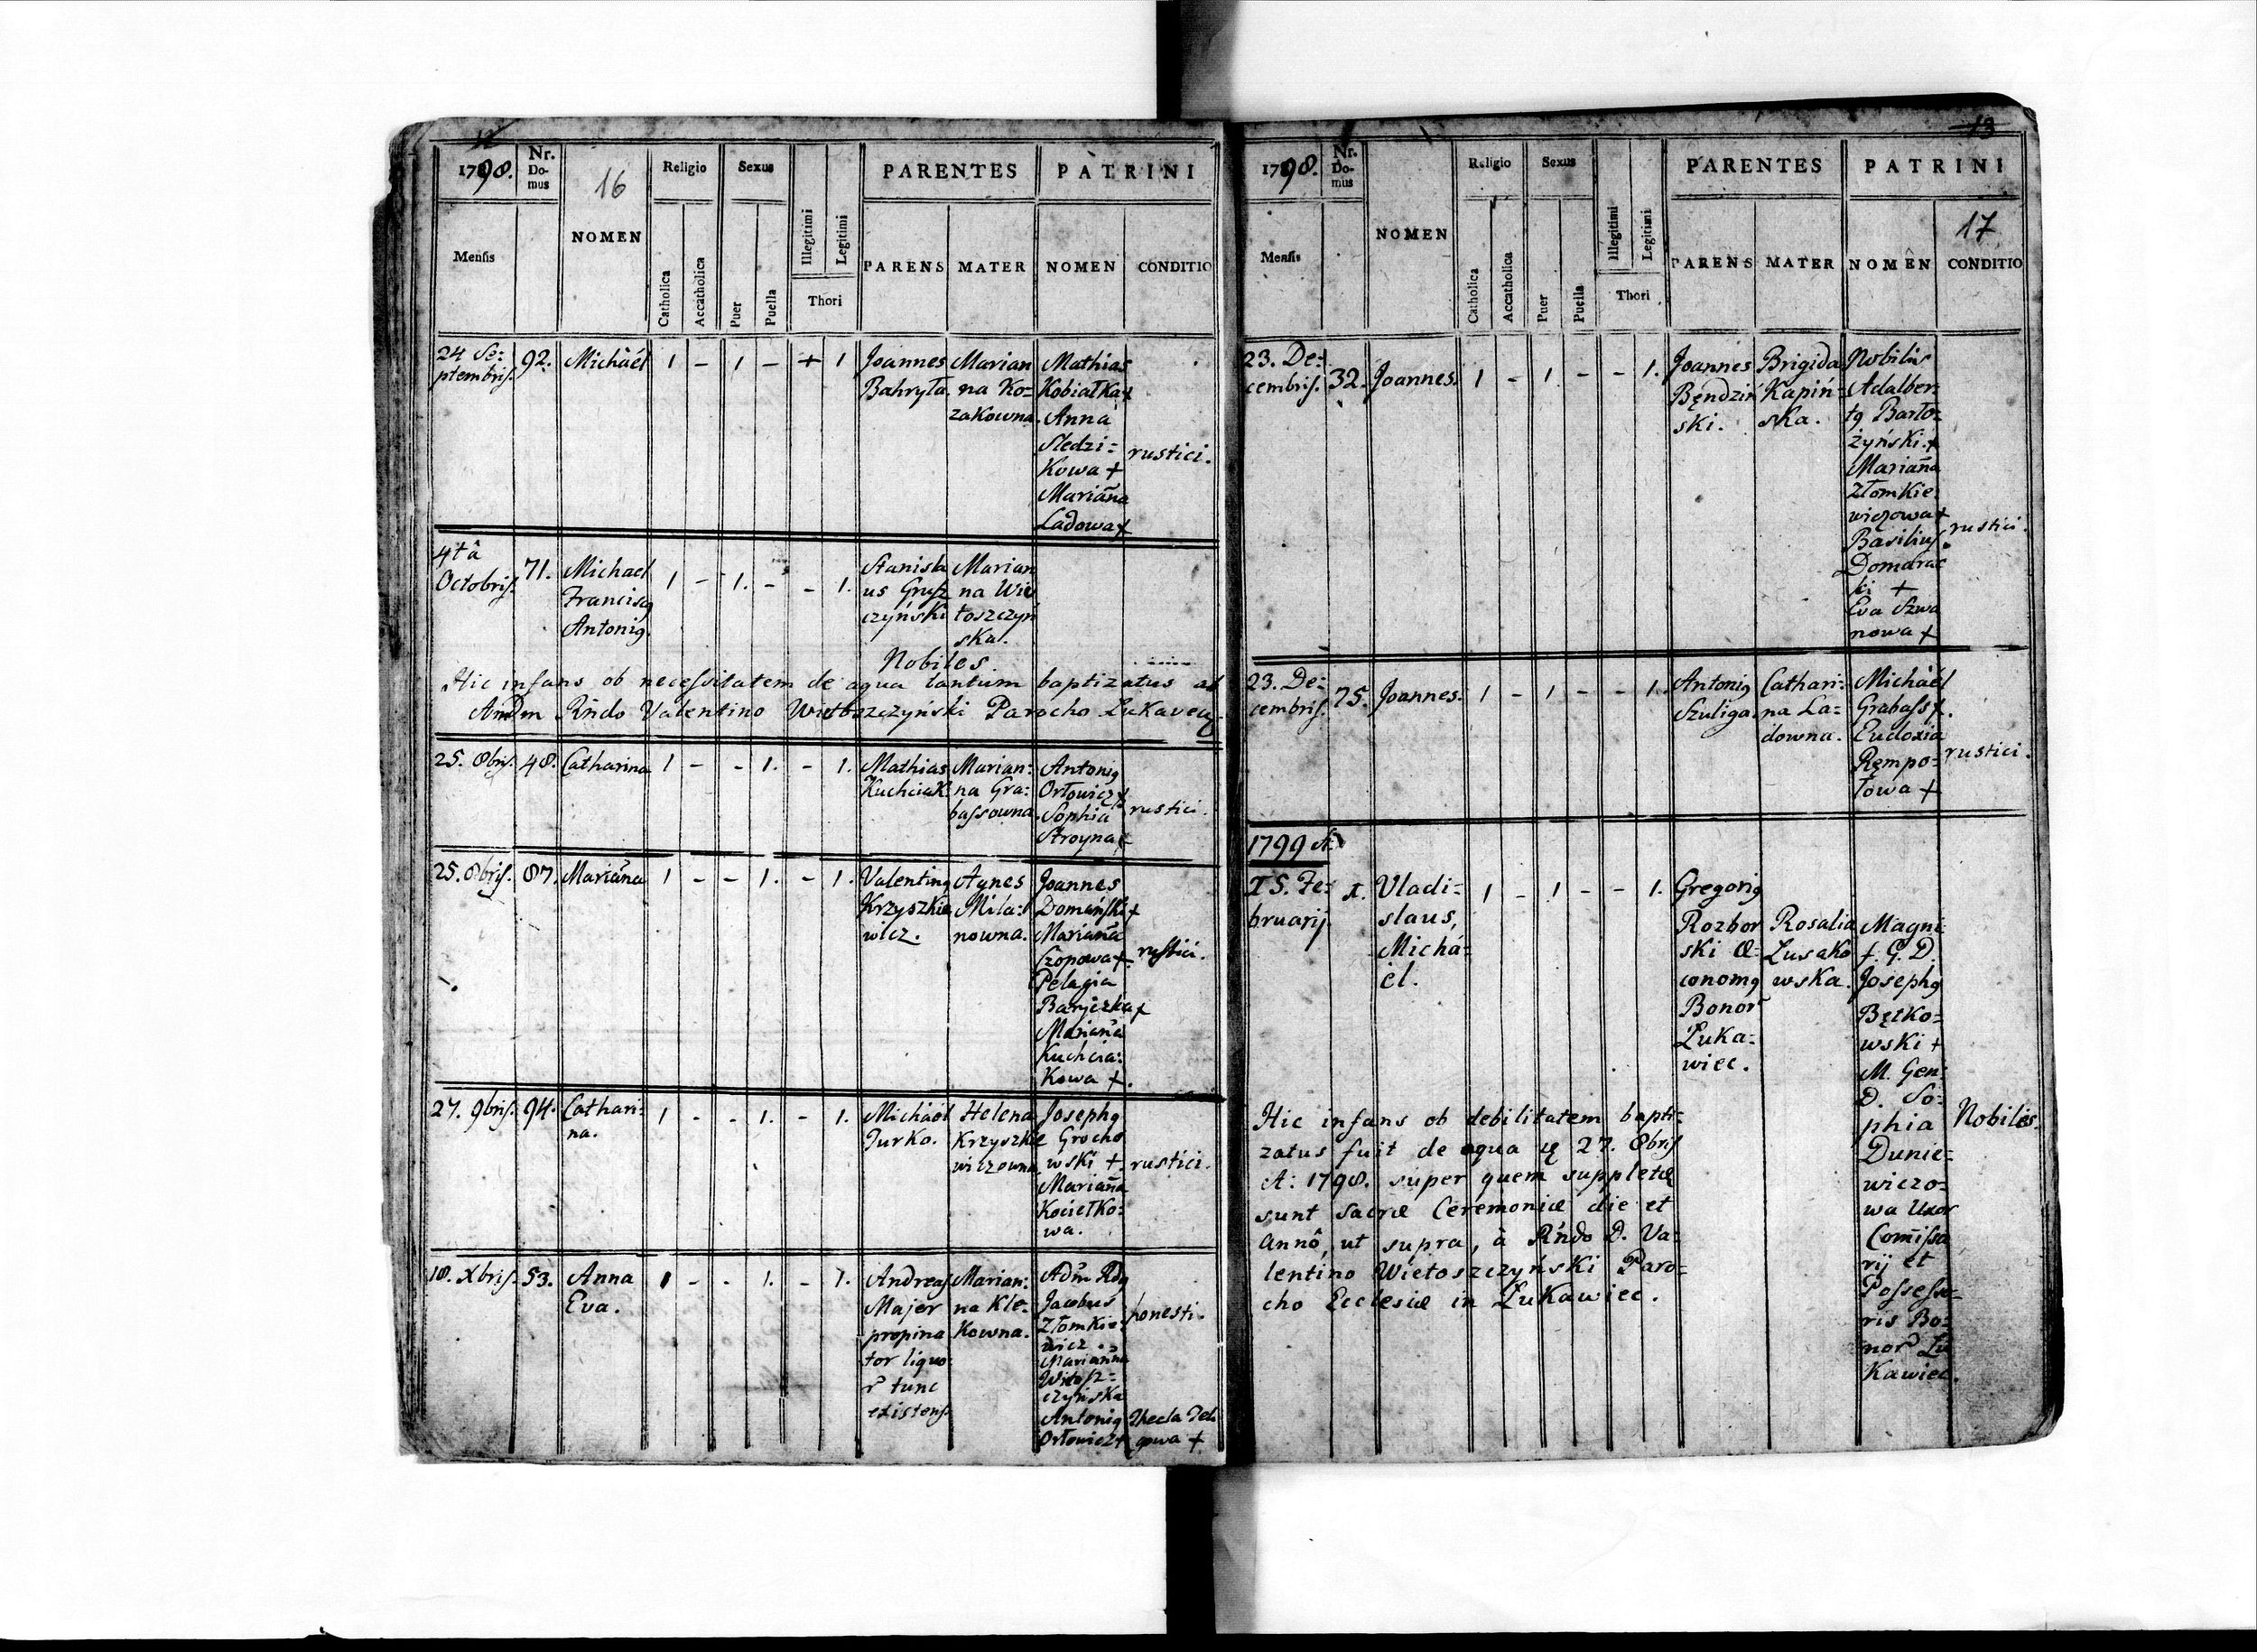 12
1798.
Nr. Domus
16
NOMEN
Religio
Sexus
PARENTES
PATRINI
Mensis
Catholica
Accatholica
Puer
Puella
Illegitimi
Legitimi
Thori
PARENS
MATER
NOMEN
CONDITIO
24 Se=
ptembris.
92.
Michäel
1 - 1 - + 1
Joannes
Bahryła.
Marian
na Ko=
zakowna.
Mathias
Kobiałka+
Anna
Sledzi=
Kowa +
Mariana
Ladowa+
rustici.
4tâ
Octobris.
71.
Michael
Francisq
Antoniq.
1 - 1. - - 1.
Stanisla
us Grusz
czyński
Marian
na Wie
toszczyń
ska.
Nobiles.
Hic infans ob necessitatem de aqua tantum baptizatus ab
Rñdo Valentino Wietoszczyński Parocho
25. 8bris.
48.
Catharina
1 - - 1. - 1.
Mathias
Kuchciak.
Marian=
na Gra=
bassowna.
Antoniq
Orłowicz+
Sophia
Stroyna+
rustici.
25. 8bris.
87.
Mariana
1 - - 1. - 1.
Valentinq
Krzyszkie
wicz.
Agnes
Mila=
nowna.
Joannes
Domański+
Mariana
Czopowa+
Pelagia
Baryczka+
Mariana
Kuchcia=
Kowa +.
rustici.
27. 9bris.
94.
Cathari=
na.
1 - - 1. - 1.
Michäel
Jurko.
Helena
Krzyszkie
wiczowna
Josephq
Grocho
wski +
Mariana
Kociełko=
wa.
rustici.
18. Xbris.
53.
Anna
Eva.
1 - - 1. - 1.
Andreas
Majer
propina
tor liquo
r tunc
existens
Marian=
na Kle=
Kowna.
Jacobus
Złomkie=
wicz.
Marianna
Wietosz=
czyńska
Antoniq
Orłowicz+
honesti.
Thecla
gowa +
13
1798.
Nr. Domus
NOMEN
Religio
Sexus
PARENTES
PATRINI
17
Mensis
Catholica
Accatholica
Puer
Puella
Illegitimi
Legitimi
Thori
PARENS
MATER
NOMEN
CONDITIO
23. De=
cembris.
32.
Joannes.
1 - 1 - - 1.
Joannes
Będziń
ski.
Brigida
Kapiń=
ska.
Nobilis
Adalber=
tq Barto=
żyński.+
Mariana
Złomkie=
wiczowa+
Basilius
Domarac
ki +
Eva Szwa
nowa +
rustici.
23. De=
cembris.
75.
Joannes.
1 - 1 - - 1.
Antoniq
Szuliga.
Cathari=
na La=
downa.
Michäel
Grabass+.
Eudoxia
Rempo=
łowa +
rustici.
1799 A.
15. Fe=
bruarij.
1.
Vladi=
slaus,
Michä=
el.
1 - 1 - - 1.
Gregoriq
Rozbor
ski Œ=
conomq
Bonor
Łuka=
wiec.
Rosalia
Lusako
wska.
Magni
f. G. D.
Josephq
Bętko=
wski +
M. Gen=
D. So=
phia
Dunie=
wiczo=
wa Uxor
Comissa
rij et
Possesso=
ris Bo=
nor Łu
Kawiec.
Nobiles.
Hic infans ob debilitatem bapti=
zatus fuit de aqua 27. 8bris
A: 1798. super quem suppletæ
sunt sacræ Ceremoniæ die et
Annô, ut supra, à Rñdo D. Va=
lentino Wietoszczyński Paro=
cho Ecclesiæ in Łukawiec.